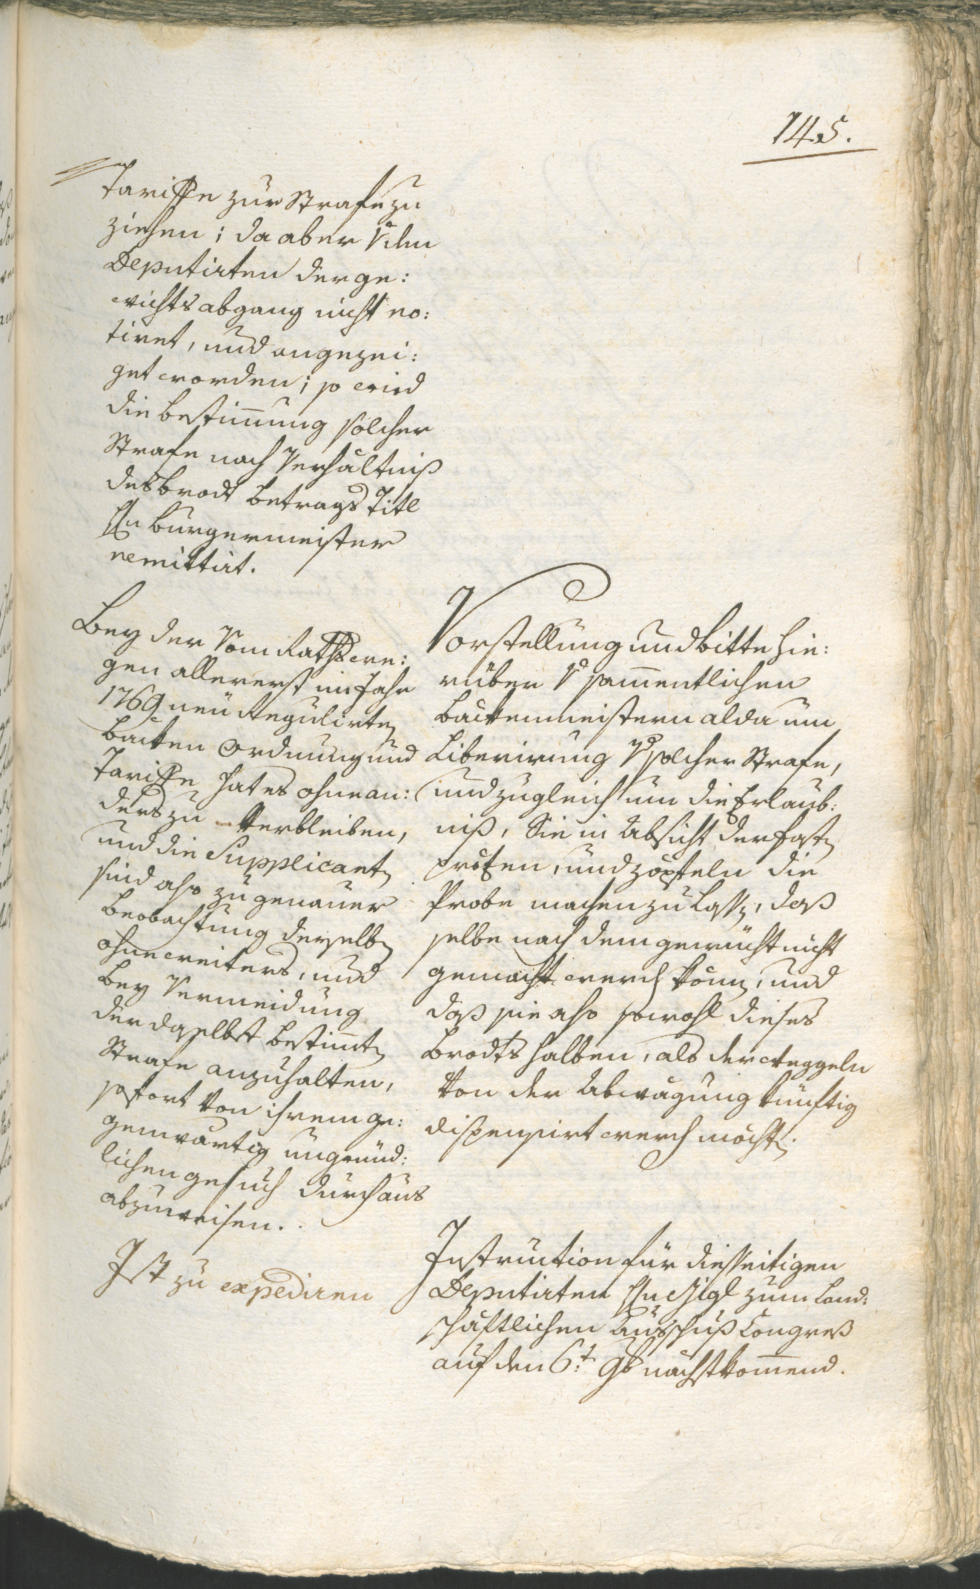 145.
Tariffe zur Straf zu
ziehen; da aber V den
Deputirten der ge:
wichts abgang nicht no:
tiret, und angezei:
get worden; so wird
die bestimmung solcher
Strafe nach Verhältniß
des brodt betrags Titl
Hn burgermeister
remittirt.
Bey der Vom Raths we:
gen allererst im Jahr
1769 neu Regulirten
backen Ordnung und
Tariffe hat es ohne an:
ders zu Verbleiben,
und die Supplicanten
sind also zu genauer
beobachtung derselben
ohne weiters, und
bey Vermeidung
der daselbst bestimten
Strafe anzuhalten,
sofort von ihrem ge:
genwärtig ungründ:
lichen gesuch durchaus
abzuweisen.
Ist zu expediren
Vorstellung und bitte hie:
rüber V sammentlichen
backenmeistern alda um
Liberirung V solcher Strafe,
und zugleich um die Erlaub:
niß, Sie in Absicht der fasten
prezen, und zöpfeln die
Probe machen zu lassen, daß
selbe nach dem gewicht nicht
gemacht werden können, und
daß sie also sowohl dieses
brodts halben, als der weggeln
von der Abwägung künftig
dispensirt werden möchten.
Instruction für diesseitigen
Deputirten Hn zum Land:
schäftlichen Ausschuß Congreß
auf den 6t. 9b nächstkommend.